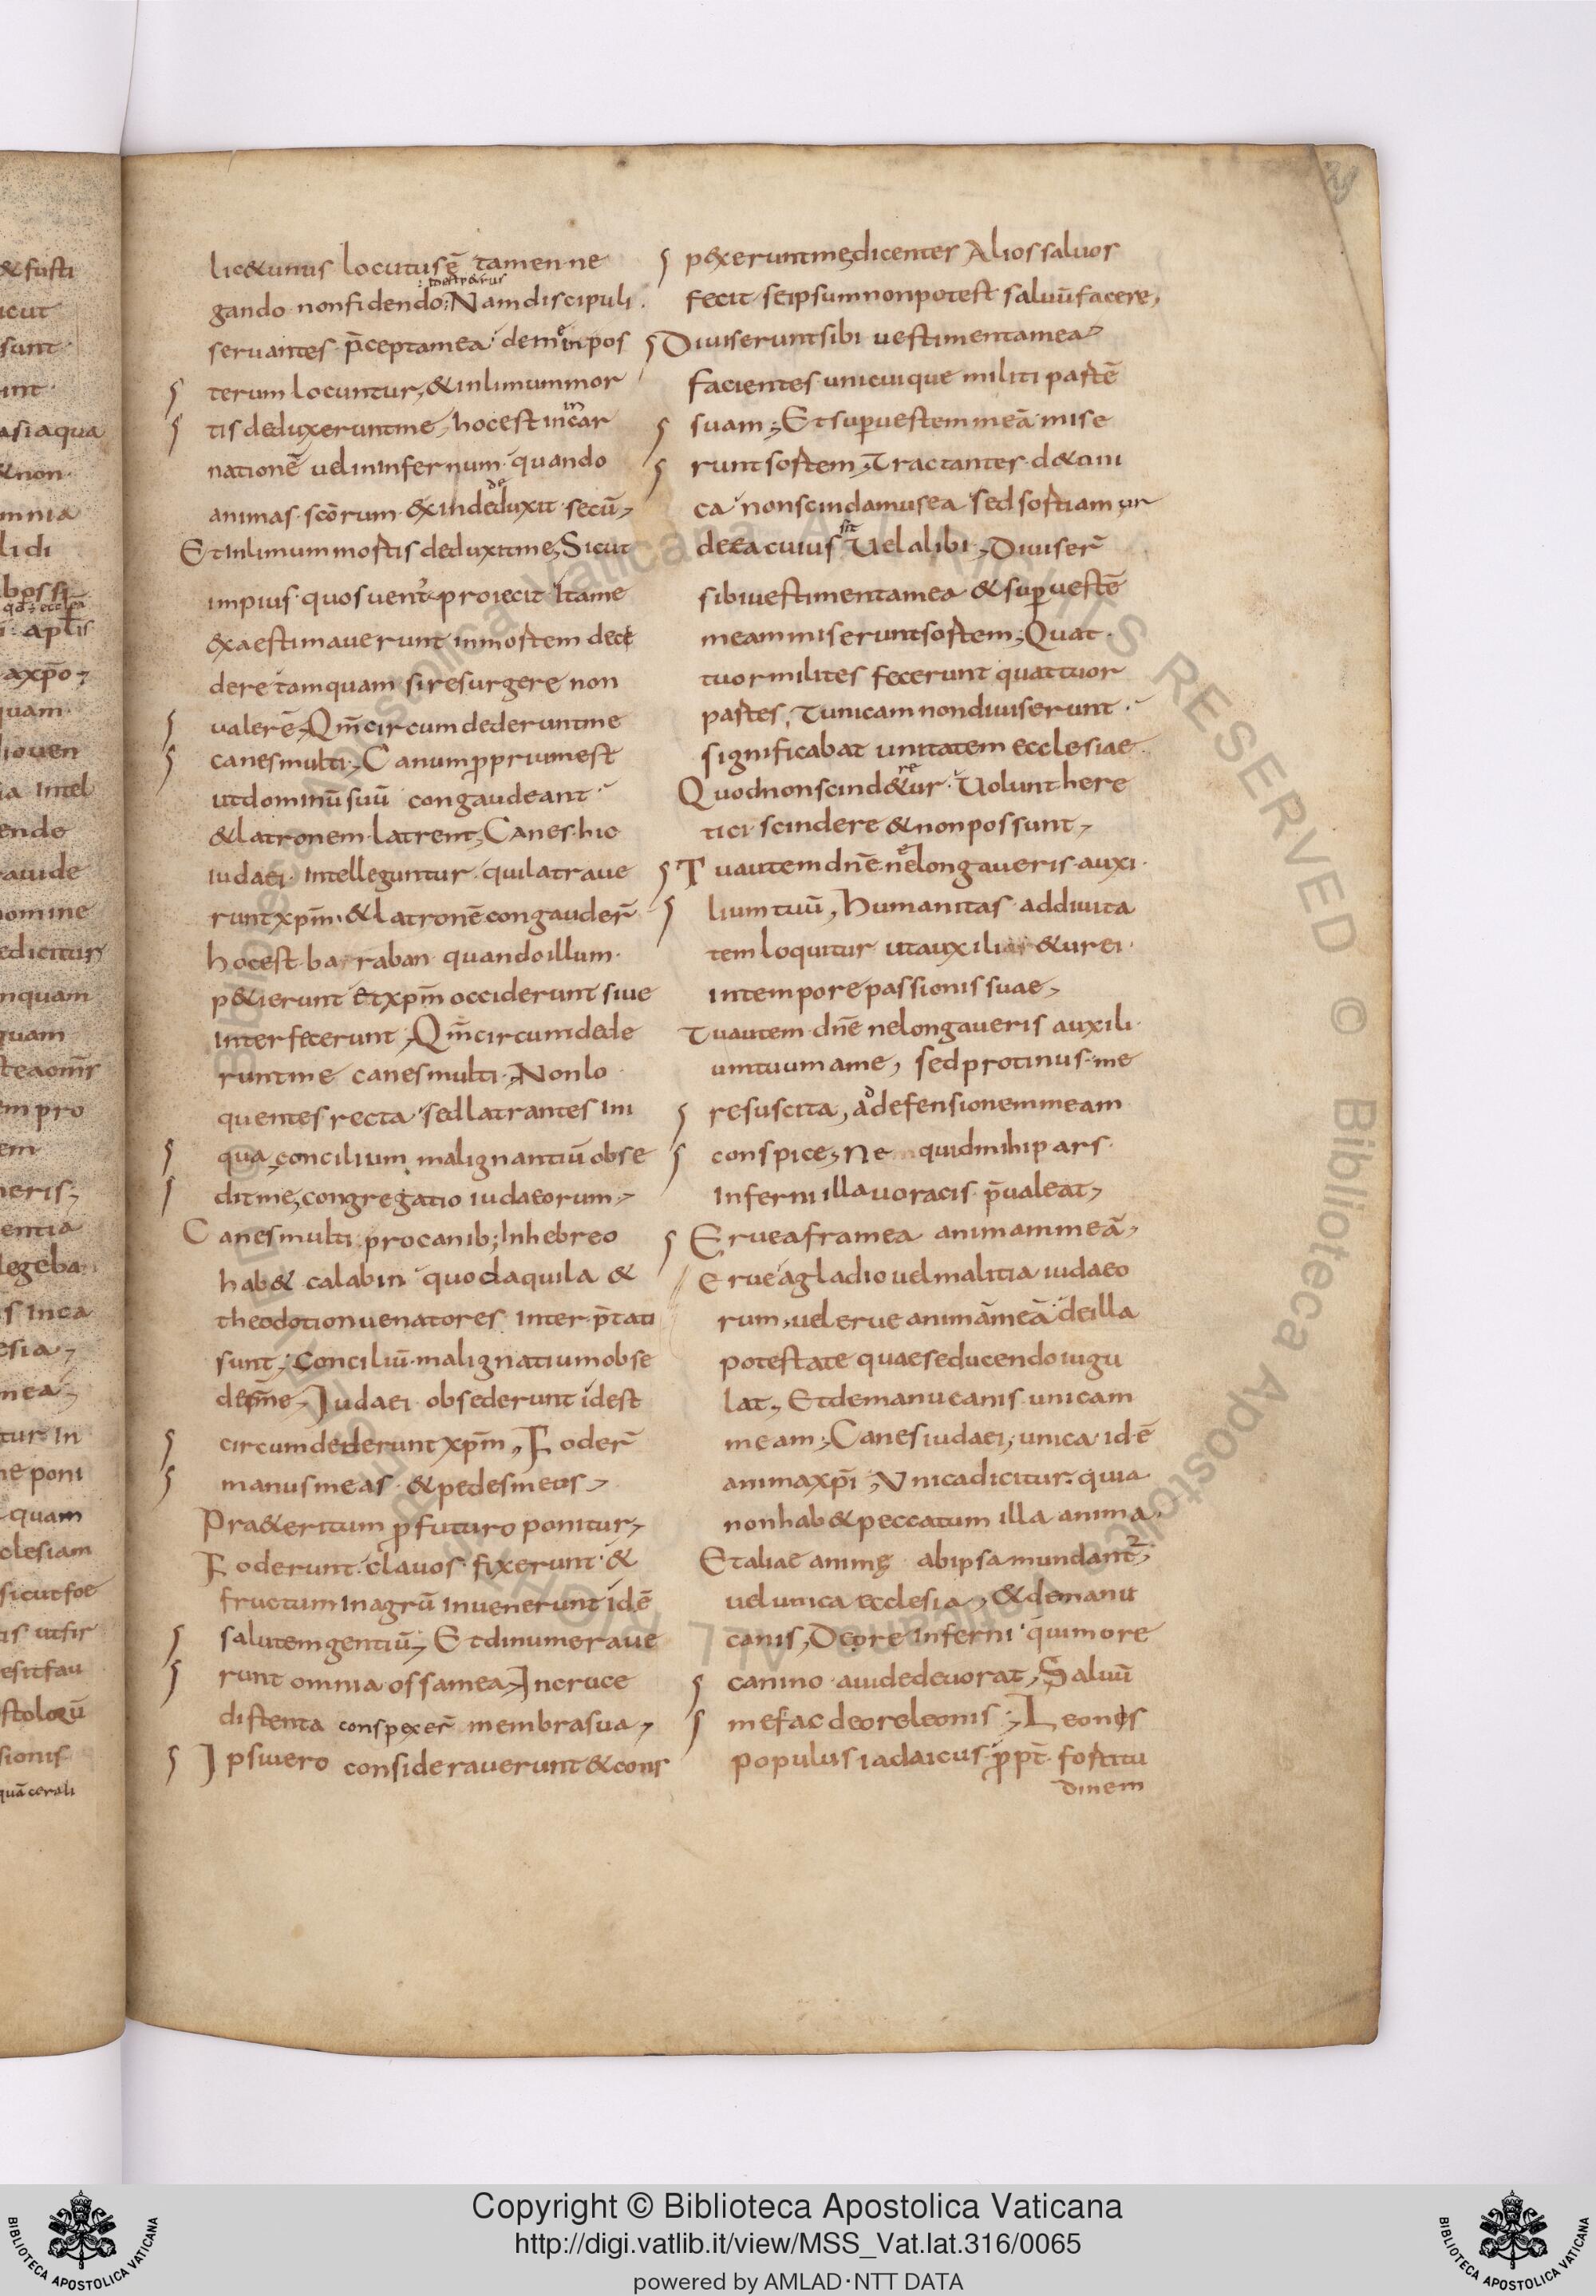 lic&unus locutus ē tamen ne
: idest petrus
gando non fidendo; Nam discipuli
seruantes p̄cepta mea de me in pos
terum locuntur, & in limum mor
tis deduxerunt me, hoc est in car
nationē uel in infernum quando
animas scōrum exinde deduxit secū,
Et in limum mortis deduxit me, Sicut
impius quos uent' proiecit ita me
exaestimauerunt in mortem dece
dere tamquam si resurgere non
ualerē, Qm̄ circumdederunt me
canes multi, Canum pprium est
ut dominū suū congaudeant
& latronem latrent, Canes hic
iudaei intelleguntur qui latraue
runt xpm̄ & latronē congauder̄
hoc est barraban quando illum
p&ierunt et xpm̄ occiderunt siue
interfecerunt, Qm̄ circumdede
runt me canes multi, Non lo
quentes recta sed latrantes ini
qua, concilium malignantiū obse
dit me, congregatio iudaeorum,
Canes multi pro canib; In hebreo
hab& calabin quod aquila &
theodotion uenatores inter p̄tati
sunt, Conciliū malignatium obse
der̄ me, Iudaei obsederunt id est
circumdederunt xpm̄, Foder̄
manus meas & pedes meos,
Pra&eritum p futuro ponitur,
Foderunt clauos fixerunt &
fructum in agrū inuenerunt id ē
salutem gentiū, Et dinumeraue
runt omnia ossa mea, In cruce
distenta conspexer̄ membra sua,
Ipsi uero considerauerunt & cons
pexerunt me, dicentes Alios saluos
fecit seipsum non potest saluū facere,
Diuiserunt sibi uestimenta mea
facientes unicuique militi partē
suam, Et sup uestem meā mise
runt sortem, Tractantes de tuni
ca non scindamus ea sed sortiamur
de ea cuius sit Uel alibi, Diuiser̄
sibi uestimenta mea & sup uestē
meam miserunt sortem, Quat
tuor milites fecerunt quattuor
partes, Tunicam non diuiserunt
significabat unitatem ecclesiae
Quod non scinderetur Uolunt here
tici scindere & non possunt,
Tu autem dnē ne elongaueris auxi
lium tuū, Humanitas ad diuita
tem loquitur ut auxiliar&ur ei
in tempore passionis suae,
Tu autem dnē ne longaueris auxili
um tuum a me, sed protinus me
resuscita, ad defensionem meam
conspice, Ne quid mihi pars
inferni illa uoracis p̄ualeat,
Erue a framea animam meā,
Erue a gladio uel malitia iudaeo
rum, uel erue animā meā de illa
potestate quae seducendo iugu
lat, Et de manu canis unicam
meam, Canes iudaei, unica id ē
anima xpī, Unica dicitur quia
non hab& peccatum illa anima
Et aliae animę ab ipsa mundant',
uel unica ecclesia, & de manu
canis, De ore inferni qui more
canino auide deuorat, Saluū
me fac de ore leonis, Leones
populus iadaicus ppt̄ fortitu
dinem
Copyright © Biblioteca Apostolica Vaticana
http://digi.vatlib.it/view/MSS_Vat.lat.316/0065
powered by AMLAD·NTT DATA